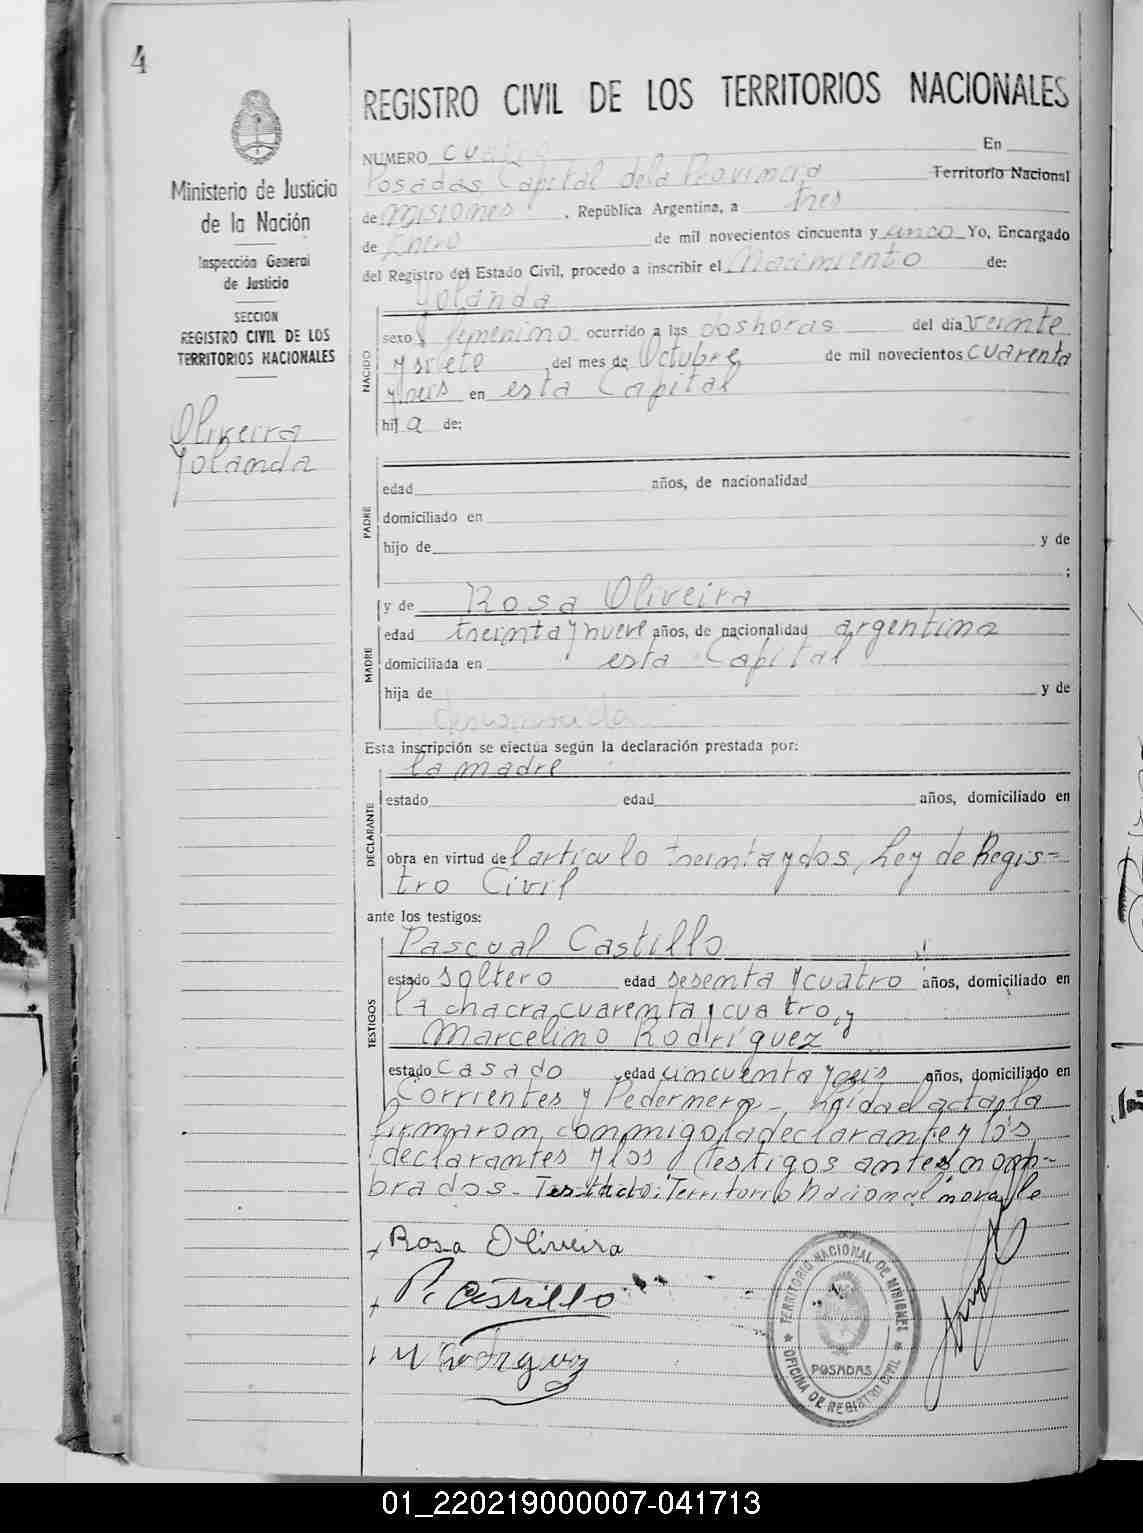 4
REGISTRO CIVIL DE LOS TERRITORIOS NACIONALES
Ministerio de Justicia
de la Nación
Inspección General
de Justicia
SECCION
REGISTRO CIVIL DE LOS
TERRITORIOS NACIONALES
Oliveira
Yolanda
NUMERO cuatro En
Posadas Capital de la Provincia Territorio Nacional
de Misiones, República Argentina, a tres
de Enero de mil novecientos cincuenta y cinco Yo, Encargado
del Registro del Estado Civil, procedo a inscribir el Nacimiento de:
Yolanda
NACIDO
sexo femenino ocurrido a las dos horas del día veinte
y siete del mes de Octubre de mil novecientos cuarenta
y seis en esta Capital
hija de:
PADRE
edad años, de nacionalidad
domiciliado en
hijo de y de
;
y de Rosa Oliveira
MADRE
edad treinta y nueve años, de nacionalidad argentina
domiciliada en esta Capital
hija de y de
Esta inscripción se efectúa según la declaración prestada por:
la madre
DECLARANTE
estado edad años, domiciliado en
obra en virtud del artículo treinta y dos, Ley de Regis-
tro Civil
ante los testigos:
Pascual Castillo
TESTIGOS
estado soltero edad sesenta y cuatro años, domiciliado en
la chacra cuarenta y cuatro, y
Marcelino Rodríguez
estado casado edad cincuenta y seis años, domiciliado en
Corrientes y Pedernera-, leída el acta, la
firmaron conmigo la declarante y los
declarantes y los testigos antes nom-
brados.- Testado: Territorio Nacional, no vale
Rosa Oliveira
P. Castillo
M Rodriguez
TERRITORIO NACIONAL DE MISIONES
POSADAS
OFICINA DE REGISTRO CIVIL
01_220219000007-041713